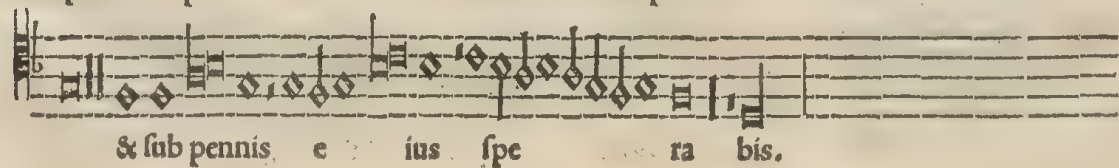 & ſub pennis e ius ſpe ra bis.